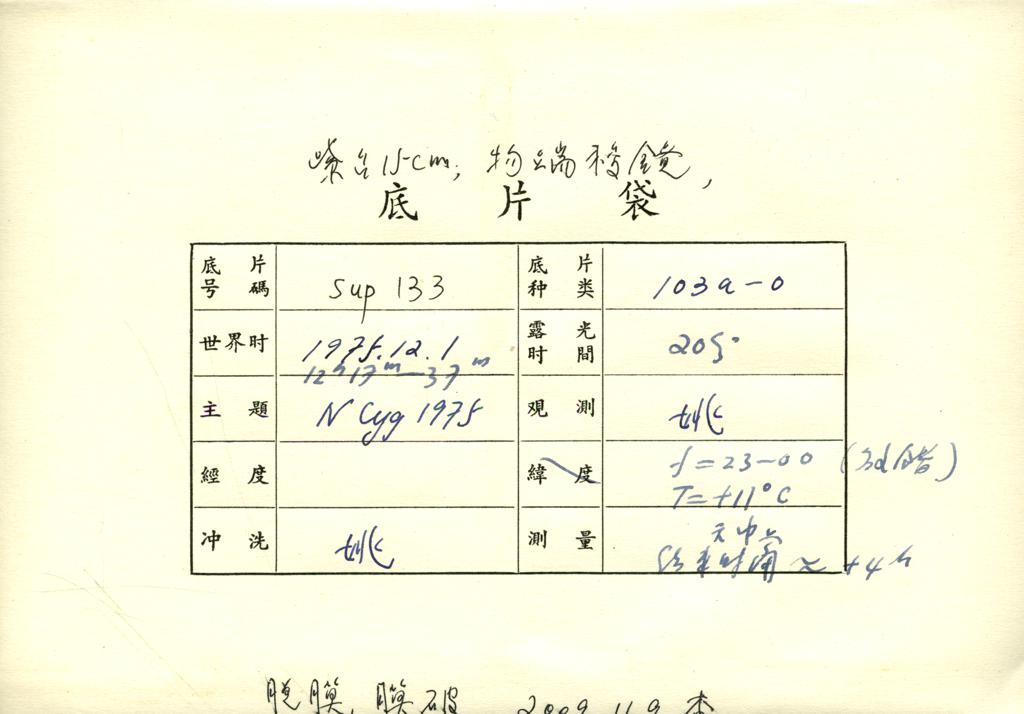 紫台15cm, 物端棱鏡,
底 片 袋
底片号碼 Sup 133 底片种类 103a-0
世界时 1975.12.1 12h17m-37m 露光时間 20分
主題 N Cyg 1975 观測 姚
經度 緯度 f=23-00 (3d 錯) T=+11°C
冲洗 姚 測量 天中 结束时 ≈ +4h
脱膜, 膜破 2009.11.9 李